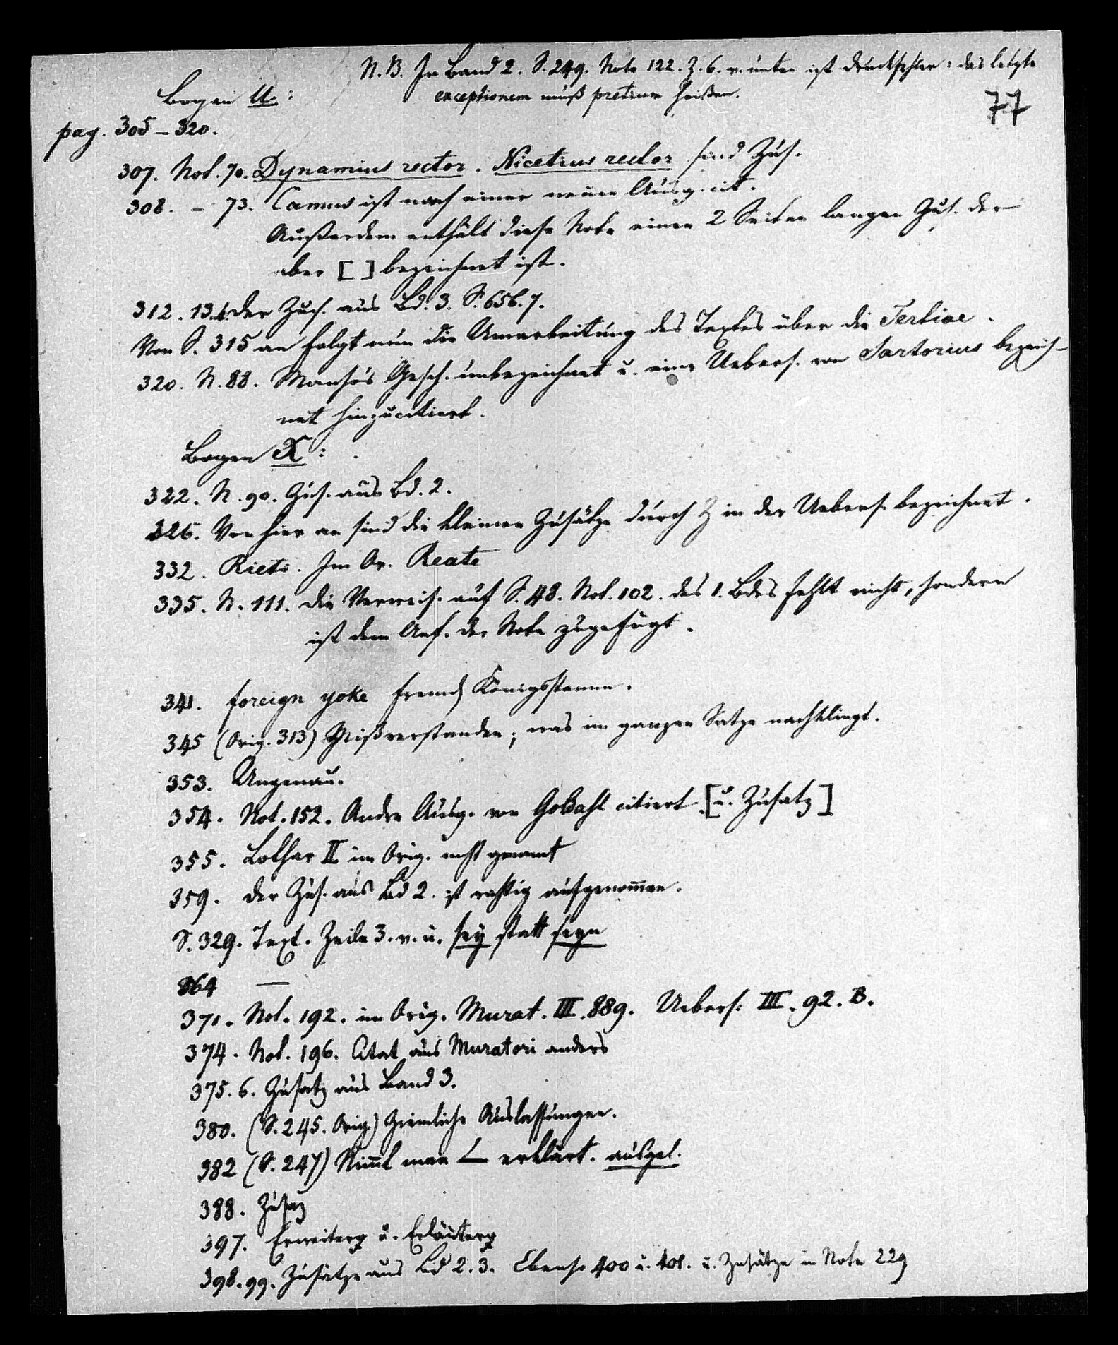 N. B. In Band 2. S. 249. Note 122. Z. 6. v. unten ist Druckfehler: das letzte
exceptionem muß pretium heißen.
77
Bogen U:
pag. 305–320.
307. Not. 70. Dynamius rector. Nicetius rector sind Zus.
308. – 73. Camus ist nach einer neuen Ausg. cit.
Außerdem enthält diese Note einen 2 Seiten langen Zus. der
aber [ ] bezeichnet ist.
312. 13. der Zus. aus Bd. 3. S. 656. 7.
Von S. 315 an folgt nun die Umarbeitung des Textes über die Tertiae.
320. N. 88. Manso's Gesch. unbezeichnet u. eine Uebers. von Sartorius bezeich-
net hinzucitiert.
Bogen X:
322. N. 90. Zus. aus Bd. 2.
326. Von hier an sind die kleinen Zusätze durch Z in der Uebers. bezeichnet.
332. Rieti. Im Or. Reate
335. N. 111. die Verweis. auf S. 48. Not. 102. des 1. Bdes fehlt nicht, sondern
ist dem Anf. der Note zugefügt.
341. foreign yoke fremd Königsstamm.
345 (Orig. 313) Mißverstanden; was im ganzen Satze nachklingt.
353. Ungenau.
354. Not. 152. Andre Ausg. von Goldast citiert. [u. Zusatz]
355. Lothar II im Orig. nicht genannt
359. der Zus. aus Bd 2. ist richtig aufgenommen.
S. 329. Text. Zeile 3. v. u. sey statt seyn
364 —
371. Not. 192. im Orig. Murat. III. 889. Uebers. III. 92. B.
374. Not. 196. Citat aus Muratori anders
375. 6. Zusatz aus Band 3.
380. (S. 245. Orig) Ziemliche Auslassungen.
382 (S. 247) Nimmt man erklärt. ausgel.
388. Zusatz
397. Erweiterg u. Erläuterg
398. 99. Zusätze aus Bd 2. 3. Ebenso 400 u. 401. u. Zusätze in Note 229